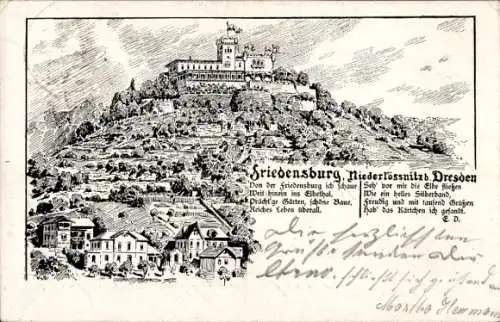 Friedensburg, Niederlössnitz b. Dresden
Von der Friedensburg ich schaue
Weit hinein ins Elbethal,
Prächt'ge Gärten, schöne Baue,
Reiches Leben überall.
Seh' vor mir die Elbe fließen
Wie ein helles Silberband,
Freudig und mit tausend Grüßen
Hab' das Kärtchen ich gesandt.
E. D.
Die herzlichsten
Grüße senden